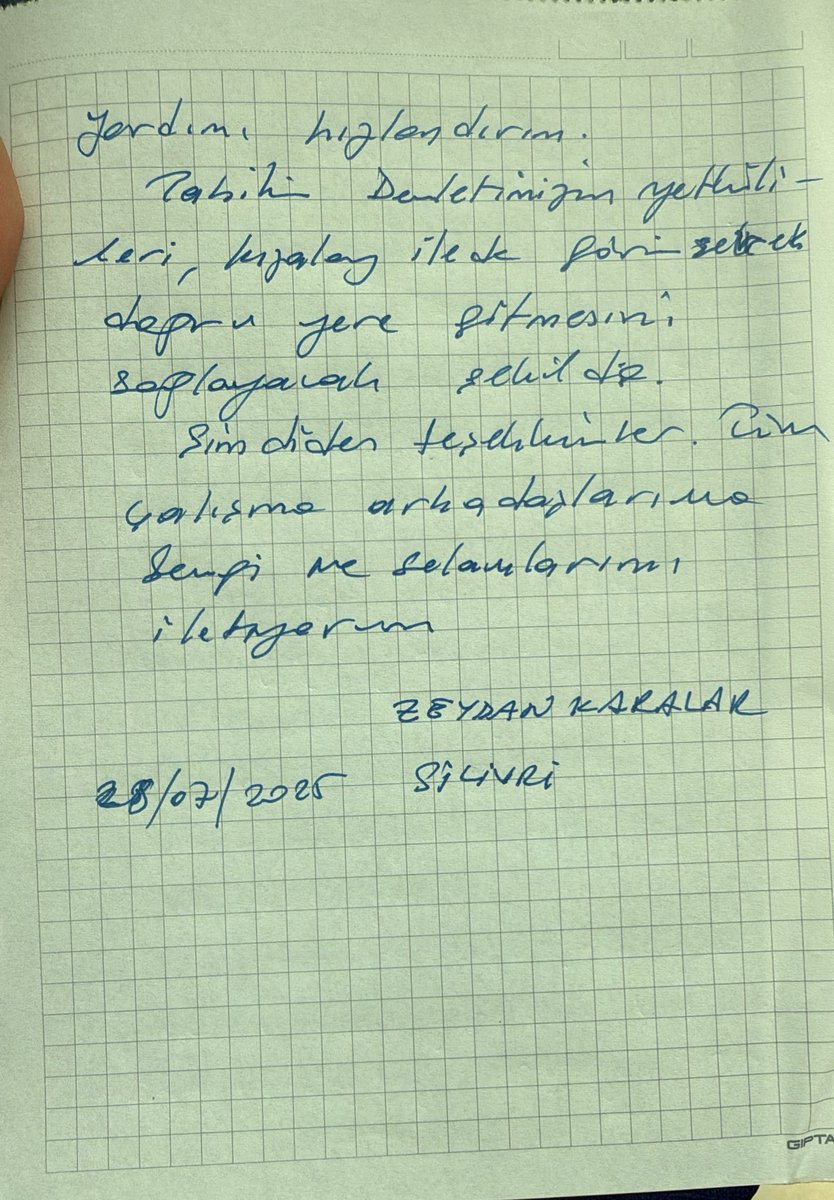 Yardımı hızlandırın.
Tabiki Devletimizin yetkili-
leri, kızalay ilede görüşerek
doğru yere gitmesini
sağlayacak şekilde.
Şimdiden teşekkürler. Tüm
çalışma arkadaşlarıma
Sevgi ve selamlarımı
iletiyorum
ZEYDAN KARALAR
28/07/2025 SİLİVRİ
GIPTA